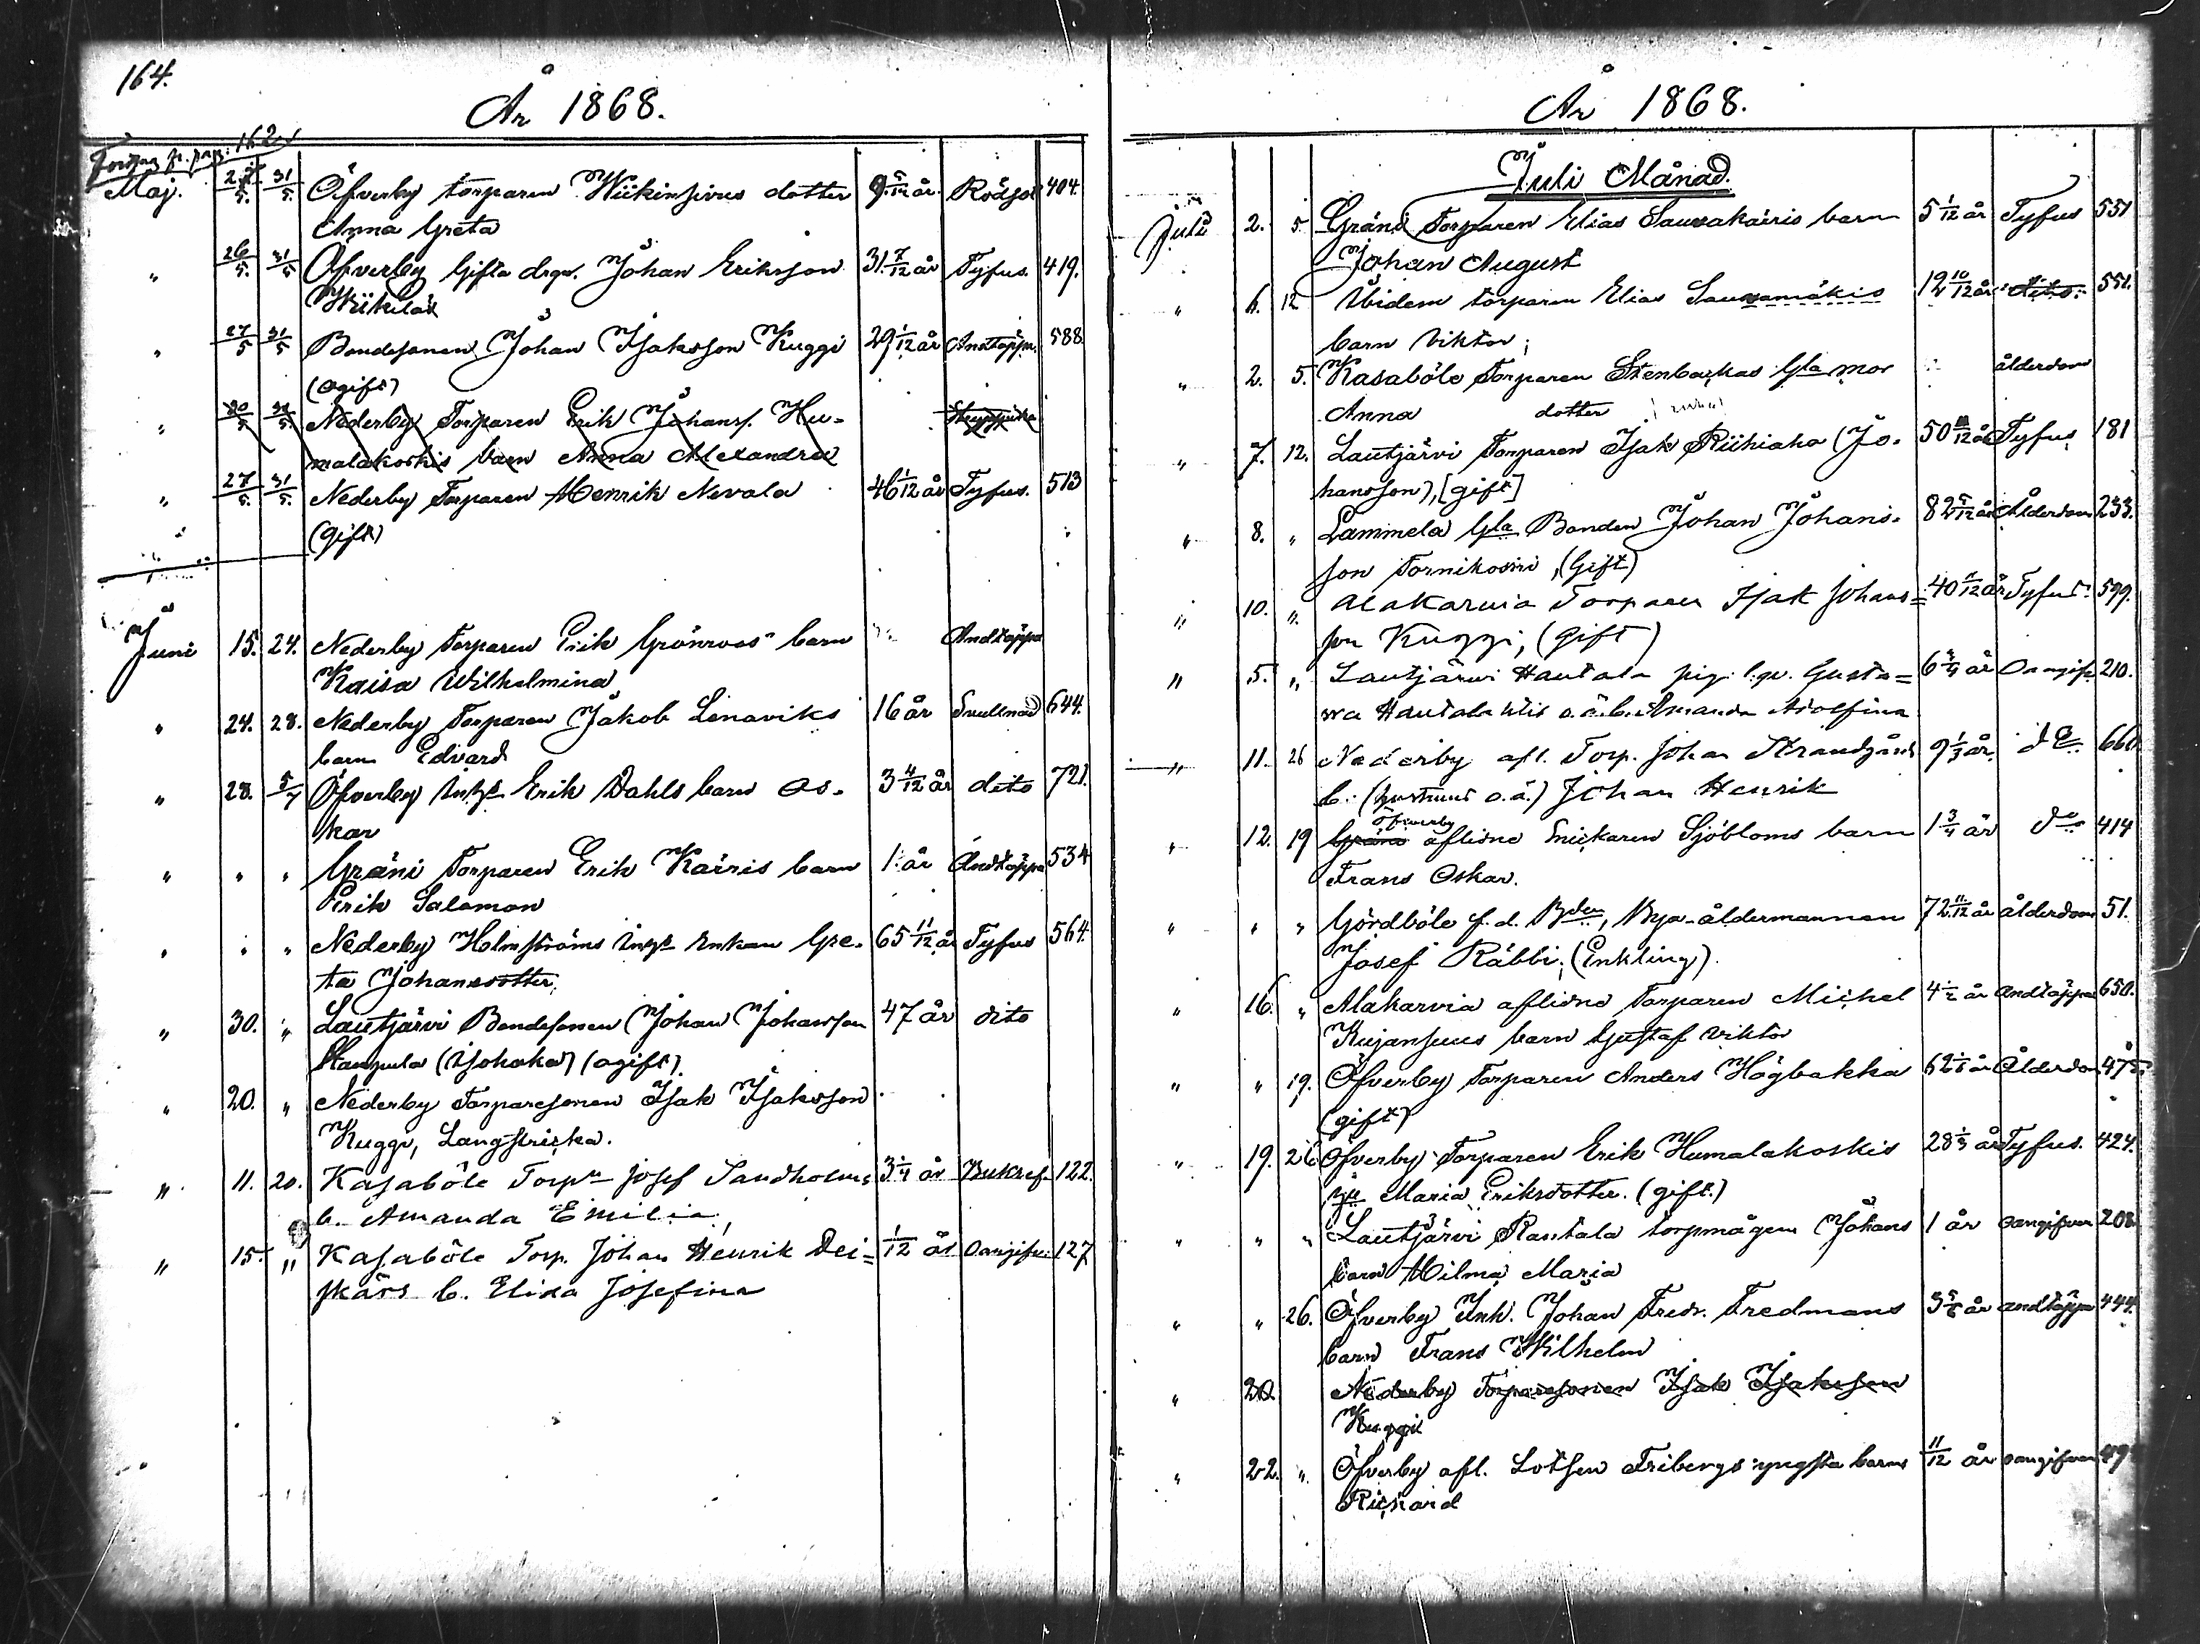 164.
År 1868.
Fortsg fr. pag: 162
Maj. 31/5. Öfverby torparen Wiikinsivus dotter 9 5/12 år Rödsot 404.
Anna Greta
" 26/5. 31/5 Öfverby Gifta drgn. Johan Eriksson 31 7/12 år Tyfus. 419.
Wiikilä
" 27/5 31/5 Bondesonen Johan Isaksson Kuggi 29 1/12 år Andtäppa. 588.
(ogift)
" 30/5 31/5. Nederby Torparen Erik Johanss. Hu- Strypsjuka
malakoskis barn Anna Alexandra
" 27/5. 31/5. Nederby Torparen Henrik Nevala 46 1/12 år Tyfus. 513
(Gift)
Juni 15. 24. Nederby Torparen Erik Grönroos barn Andtäppa
Kaisa Wilhelmina
" 24. 28. Nederby Torparen Jakob Lenaviks 16 år Svullnad 644.
barn Edvard
" 28. 5/7 Öfverby Inhs Erik Dahls barn Os- 3 4/12 år dito 721.
kar
" " " Gräni Torparen Erik Kairis barn 1 år Andtäppa 534
Erik Salomon
" " " Nederby Holmströms Inhs Enkan Gre- 65 11/12 år Tyfus 564.
ta Johansdotter.
" 30. " Lautjärvi Bondesonen Johan Johansson 47 år dito
(Isohaka) (ogift)
" 20. " Nederby Torparesonen Isak Isaksson
Kuggi, Langstricka.
" 11. 20. Kasaböle Torpn Josef Sandholms 3 1/4 år Bukref. 122.
b. Amanda Emilia
" 15. " Kasaböle Torp. Johan Henrik Dei= 1/12 år Oangifv. 127
skärs b. Elisa Josefina
År 1868.
Juli Månad.
Juli 2. 5 Gränd Torparen Elias Sausakairis barn 5 1/12 år Tyfus 551
Johan August
" 6. 12 Ibidem torparen Elias Sausamäkis 12 10/12 år dito. 551.
barn Viktor;
" 2. 5. Kasaböle Torparen Stenbackas Gla mor ålderdom
Anna dotter
" 7. 12. Lautjärvi Torparen Isak Riihiaho (Jo- 50 år Tyfus 181
hansson), [gift]
" 8. " Lammela Gla Bonden Johan Johans- 82 5/12 år Ålderdom 233.
son Tornikoski, (Gift)
" 10. " Alakarvia Torparen Isak Johans= 40 år Tyfus. 599.
son Kuggi, (gift)
" 5. " Lautjärvi Hautala pig. Gusta= 6 3/4 år Oangif. 210.
va Hautalas o.ä.b. Amanda Adolfina
" 11. 26 Nederby afl. Torp. Johan Strandgårds 9 1/3 år do 661
b. (hustruns o.ä.) Johan Henrik
Öfverby
" 12. 19 Gränd aflidne Snickaren Sjöbloms barn 1 3/4 år do 414
Frans Oskar.
" " " Gördböle f.d. Bden, Bya-åldermannen 72 11/12 år ålderdom 51.
Josef Räbbi; (Enkling).
" 16. " Alakarvia aflidne Torparen Michel 4 1/2 år Andtäppa 650.
Kujansuus barn Gustaf Viktor
" " 19. Öfverby Torparen Anders Högbakka år Ålderdom 475
(gift)
" 19. 26 Öfverby Torparen Erik Humalakoskis 28 1/3 år Tyfus. 424.
Maria Eriksdotter. (gift.)
" " " Lautjärvi Rantala torpmågen Johans 1 år oangifven 208
barn Hilma Maria
" " 26. Öfverby Inh. Johan Fredr. Fredmans 3 5/6 år andtäppa 444.
barn Frans Wilhelm
" 20. Nederby Torparesonen Isak Isaksson
Kuggi
" 22. " Öfverby afl. Lotsen Fribergs yngsta barn 11/12 år oangifven 49
Rickard